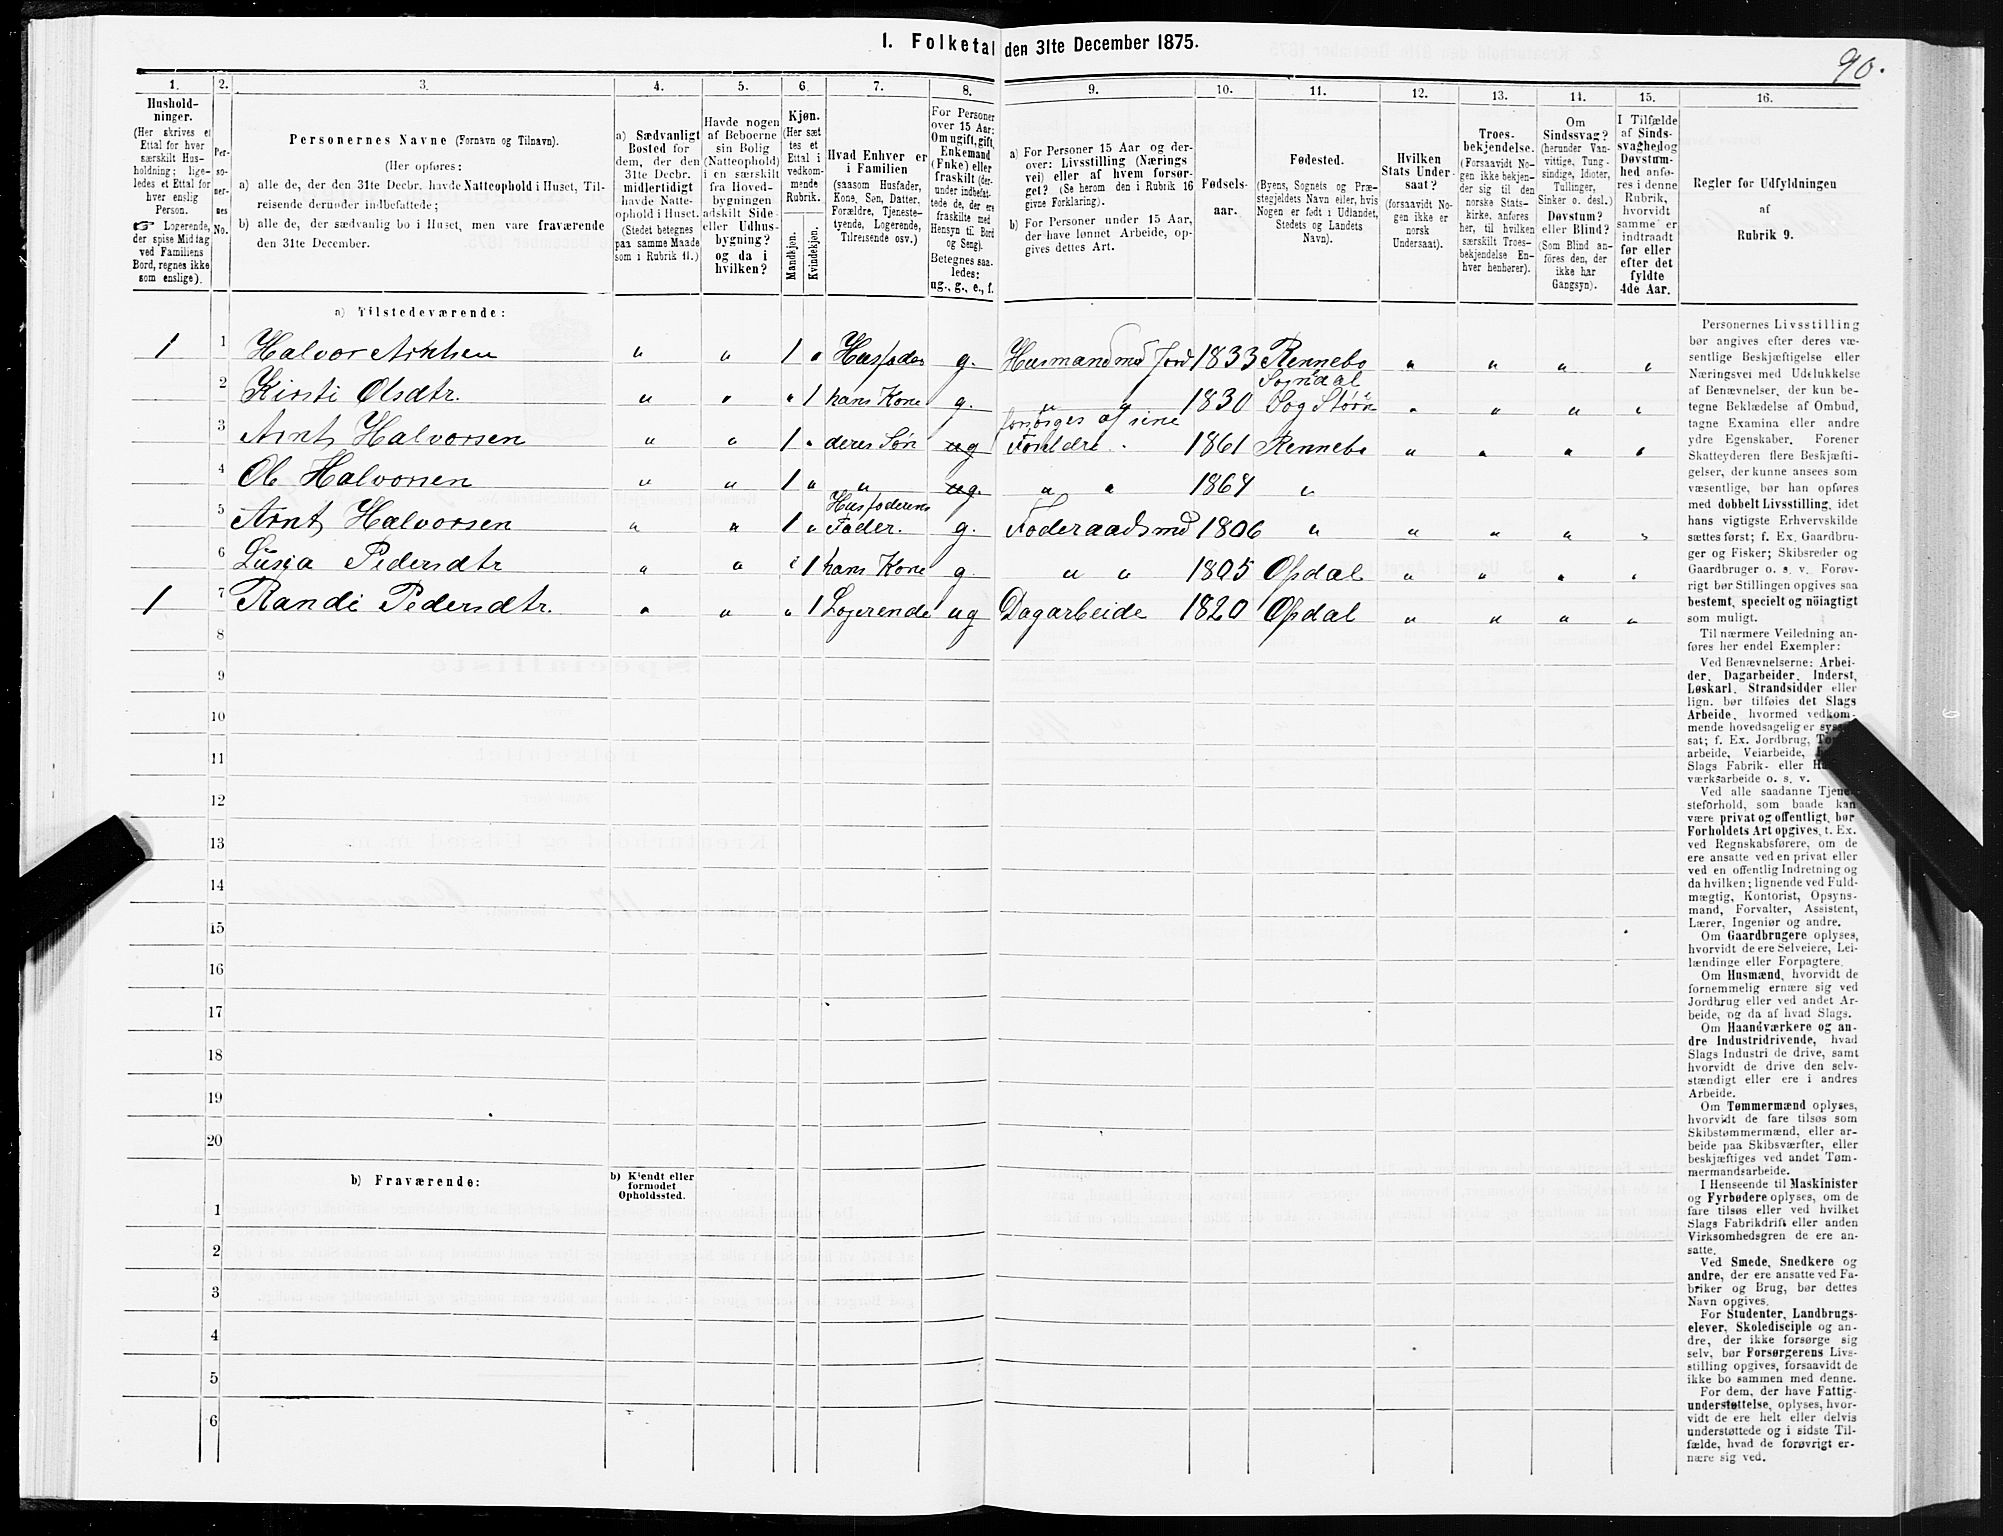 1. Folketal den 31te December 1875.
90.
1.
2.
3.
4.
5.
6.
7.
8.
9.
10.
11.
12.
13.
14.
15.
16.
Hushold-
ninger.
(Her skrives et
Ettal for hver
særskilt Hus-
holdning; lige-
ledes et Ettal for
hver enslig
Person.
☞ Logerende,
der spise Middag
ved Familiens
Bord, regnes ikke
som enslige).
Per-
so-
ner-
nes
No.
Personernes Navne (Fornavn og Tilnavn).
(Her opføres:
a) alle de, der den 31te Decbr. havde Natteophold i Huset, Til-
reisende derunder indbefattede;
b) alle de, der sædvanlig bo i Huset, men vare fraværende
den 31te December.
a) Sædvanligt
Bosted for
dem, der den
31te Decbr.
midlertidigt
havde Natte-
ophold i Huset.
(Stedet betegnes
paa samme Maade
som i Rubrik 11.)
Havde nogen
af Beboerne
sin Bolig
(Natteophold)
i en særskilt
fra Hoved-
bygningen
adskilt Side-
eller Udhus-
bygning?
og da i
hvilken?
Kjøn.
(Her sæt-
tes et
Ettal i
vedkom-
mende
Rubrik.
Mandkjøn.
Kvindekjøn.
Hvad Enhver er
i Familien
(saasom Husfader,
Kone, Søn, Datter,
Forældre, Tjeneste-
tyende, Logerende,
Tilreisende osv.)
For Personer
over 15 Aar:
Om ugift, gift,
Enkemand
(Enke) eller
fraskilt (der-
under indbefat-
tede de, der ere
fraskilte med
Hensyn til Bord
og Seng).
Betegnes saa-
ledes:
ug., g., e., f.
a) For Personer 15 Aar og der-
over: Livsstilling (Nærings-
vei) eller af hvem forsør-
get? (Se herom den i Rubrik 16
givne Forklaring).
b) For Personer under 15 Aar,
der have lønnet Arbeide, op-
gives dettes Art.
Fødsels-
aar.
Fødested.
(Byens, Sognets og Præ-
stegjeldets Navn eller, hvis
Nogen er født i Udlandet,
Stedets og Landets
Navn).
Hvilken
Stats Under-
saat?
(forsaavidt No-
gen ikke er
norsk
Undersaat).
Troes-
bekjendelse.
(Forsaavidt No-
gen ikke bekjen-
der sig til den
norske Stats-
kirke, anføres
her, til hvilken
særskilt Troes-
bekjendelse En-
hver henhører).
Om
Sindssvag?
(herunder Van-
vittige, Tung-
sindige, Idioter,
Tullinger,
Sinker o. desl.)
Døvstum?
eller Blind?
(Som Blind an-
føres den, der
ikke har
Gangsyn).
I Tilfælde
af Sinds-
svaghed og
Døvstum-
hed anfø-
res i denne
Rubrik,
hvorvidt
samme er
indtraadt
før eller
efter det
fyldte
4de Aar.
Regler for Udfyldningen
af
Rubrik 9.
a) Tilstedeværende:
1 1 Halvor Arntsen " " 1 " Husfader g. Husmand md Jord 1833 Rennebo " " " "
2 Kirsti Olsdtr. " " " 1 hans Kone g. " " 1830 Sogndal Sog Støren " " " "
3 Arnt Halvorsen " " 1 " deres Søn ug forsørges af sine Foreldre 1861 Rennebo " " " "
4 Ole Halvorsen " " 1 " " ug. " " 1864 "
5 Arnt Halvorsen " " 1 " Husfaderens Fader. g. Føderaadsmd 1806 " " " " "
6 Pedersdtr " " " 1 hans Kone g. " " 1805 Opdal " " " "
1 7 Randi Pedersdtr. " " " 1 Logerende ug Dagarbeide 1820 Opdal " " " "
8
9
10
11
12
13
14
15
16
17
18
19
20
b) Fraværende:
b) Kjendt eller
formodet
Opholdssted.
1
2
3
4
5
6
Personernes Livsstilling
bør angives efter deres væ-
sentlige Beskjæftigelse eller
Næringsvei med Udelukkelse
af Benævnelser, der kun be-
tegne Beklædelse af Ombud,
tagne Examina eller andre
ydre Egenskaber. Forener
Skatteyderen flere Beskjæfti-
gelser, der kunne ansees som
væsentlige, bør han opføres
med dobbelt Livsstilling, idet
hans vigtigste Erhvervskilde
sættes først; f. Ex. Gaardbru-
ger og Fisker; Skibsreder og
Gaardbruger o. s. v. Forøv-
rigt bør Stillingen opgives saa
bestemt, specielt og nöiagtigt
som muligt.
Til nærmere Veiledning an-
føres her endel Exempler:
Ved Benævnelserne: Arbei-
der, Dagarbeider, Inderst,
Løskarl, Strandsidder eller
lign. bør tilføies det Slags
Arbeide, hvormed vedkom-
mende hovedsagelig er
sat; f. Ex. Jordbrug,
arbeide, Veiarbeide,
Slags Fabrik- eller
værksarbeide o. s. v.
Ved alle saadanne
steforhold, som baade kan
være privat og offentligt, bør
Forholdets Art opgives, t. Ex.
ved Regnskabsførere, om de
ere ansatte ved en privat eller
ved en offentlig Indretning og
da hvilken; lignende ved Fuld-
mægtig, Kontorist, Opsyns-
mand, Forvalter, Assistent,
Lærer, Ingeniør og andre.
Om Gaardbrugere oplyses,
hvorvidt de ere Selveiere, Lei-
lændinge eller Forpagtere.
Om Husmænd, hvorvidt de
fornemmelig ernære sig ved
Jordbrug eller ved andet Ar-
beide, og da af hvad Slags.
Om Haandværkere og an-
dre Industridrivende, hvad
Slags Industri de drive, samt
hvorvidt de drive den selv-
stændigt eller ere i andres
Arbeide.
Om Tømmermænd oplyses,
hvorvidt de fare tilsøs som
Skibstømmermænd, eller ar-
beide paa Skibsværfter, eller
beskjæftiges ved andet Tøm-
mermandsarbeide.
I Henseende til Maskinister
og Fyrbødere oplyses, om de
fare tilsøs eller ved hvilket
Slags Fabrikdrift eller anden
Virksomhedsgren de ere an-
satte.
Ved Smede, Snedkere og
andre, der ere ansatte ved Fa-
briker og Brug, bør dettes
Navn opgives.
For Studenter, Landbrugs-
elever, Skoledisciple og an-
dre, der ikke forsørge sig
selv, bør Forsørgerens Livs-
stilling opgives, forsaavidt de
ikke bo sammen med denne.
For dem, der have Fattig-
understøttelse, oplyses, hvor-
vidt de ere helt eller delvis
understøttede og i sidste Til-
fælde, hvad de forøvrigt er-
nære sig ved.